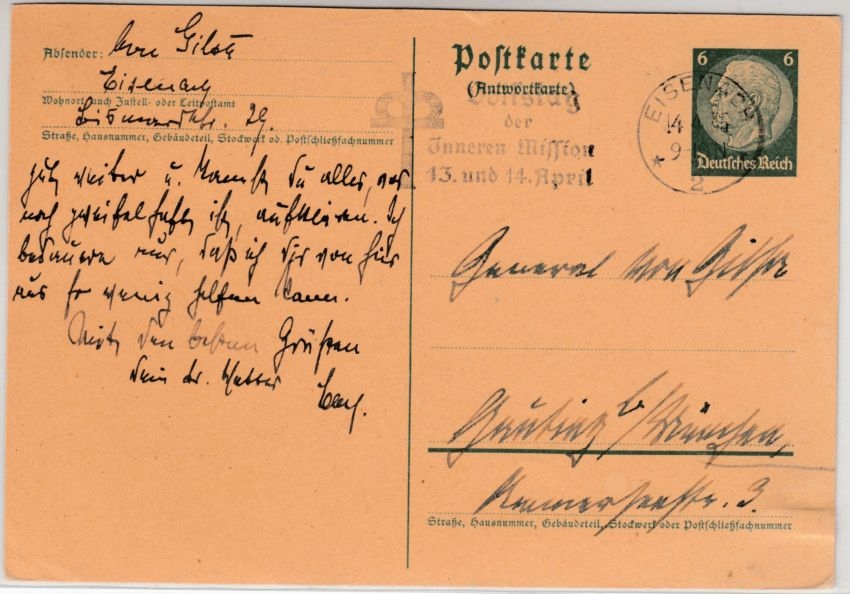 Absender: von Gilsa
Eisenach
Wohnort, auch Zustell- oder Leitpostamt
Bismarckstr. 29.
Straße, Hausnummer, Gebäudeteil, Stockwerk od. Postschließfachnummer
gut weiter u. kannst Du alles, was
noch zweifelhaft ist, aufklären. Ich
bedauere nur, daß ich Dir von hier
aus so wenig helfen kann.
Mit den besten Grüßen
Dein tr. Vetter
Postkarte
(Antwortkarte)
Volkstag
der
Inneren Mission
13. und 14. April
EISENACH
14.4.35
9-10 N
* 2
6 6
Deutsches Reich
General von Gilsa
Gauting b/München,
Ammerseestr. 3.
Straße, Hausnummer, Gebäudeteil, Stockwerk oder Postschließfachnummer